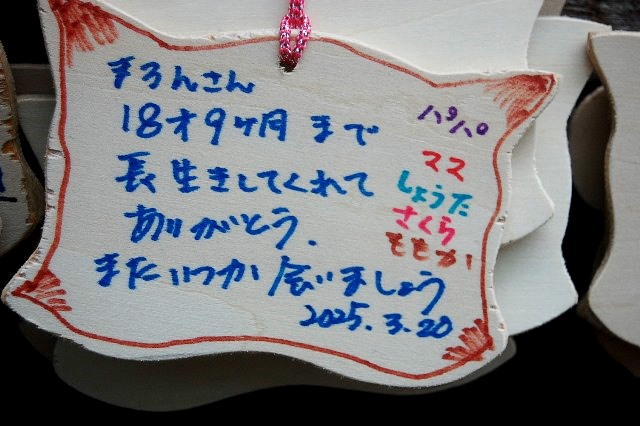 まろんさん
18才9ヶ月まで
長生きしてくれて
ありがとう.
またいつか会いましょう
2025.3.20
パパ
ママ
しょうた
さくら
ももか